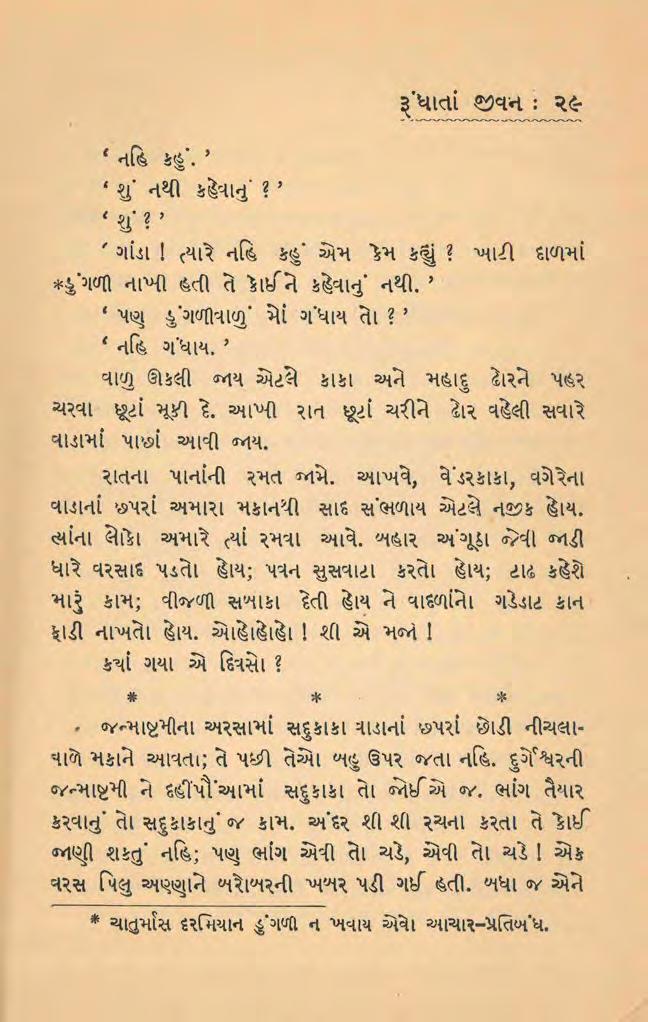 રૂંધાતાં જીવન : ૨૯
‘ નહિ કહું. ’
‘ શું નથી કહેવાનું ? ’
‘ શું ? ’
‘ ગાંડા ! ત્યારે નહિ કહું એમ કેમ કહ્યું ? ખાટી દાળમાં
*ડુંગળી નાખી હતી તે કોઈને કહેવાનું નથી. ’
‘ પણ ડુંગળીવાળું મોં ગંધાય તો ? ’
‘ નહિ ગંધાય. ’
વાળુ ઊકલી જાય એટલે કાકા અને મહાદુ ઢોરને પહર
ચરવા છૂટાં મૂકી દે. આખી રાત છૂટાં ચરીને ઢોર વહેલી સવારે
વાડામાં પાછાં આવી જાય.
રાતના પાનાંની રમત જામે. આખવે, વેંડરકાકા, વગેરેના
વાડાનાં છપરાં અમારા મકાનથી સાદ સંભળાય એટલે નજીક હોય.
ત્યાંના લોકો અમારે ત્યાં રમવા આવે. બહાર અંગૂઠા જેવી જાડી
ધારે વરસાદ પડતો હોય; પવન સુસવાટા કરતો હોય; ટાઢ કહેશે
મારું કામ; વીજળી સબાકા દેતી હોય ને વાદળાંનો ગડેડાટ કાન
ફાડી નાખતો હોય. ઓહોહોહો ! શી એ મજા !
ક્યાં ગયા એ દિવસો ?
* * *
જન્માષ્ટમીના અરસામાં સદુકાકા વાડાનાં છપરાં છોડી નીચલા-
વાળે મકાને આવતા; તે પછી તેઓ બહુ ઉપર જતા નહિ. દુર્ગેશ્વરની
જન્માષ્ટમી ને દહીંપૌંઆમાં સદુકાકા તો જોઈએ જ. ભાંગ તૈયાર
કરવાનું તો સદુકાકાનું જ કામ. અંદર શી શી રચના કરતા તે કોઈ
જાણી શકતું નહિ; પણ ભાંગ એવી તો ચડે, એવી તો ચડે ! એક
વરસ પિલુ અણ્ણાને બરોબરની ખબર પડી ગઈ હતી. બધા જ એને
* ચાતુર્માસ દરમિયાન ડુંગળી ન ખવાય એવો આચાર–પ્રતિબંધ.